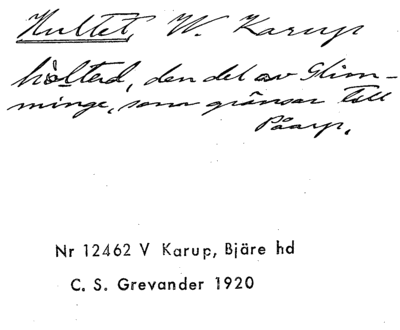 Hultet, W. Karup
hålted, den del av Glim-
minge, som gränsar till
Påarp.
Nr 12462 V Karup, Bjäre hd
C. S. Grevander 1920